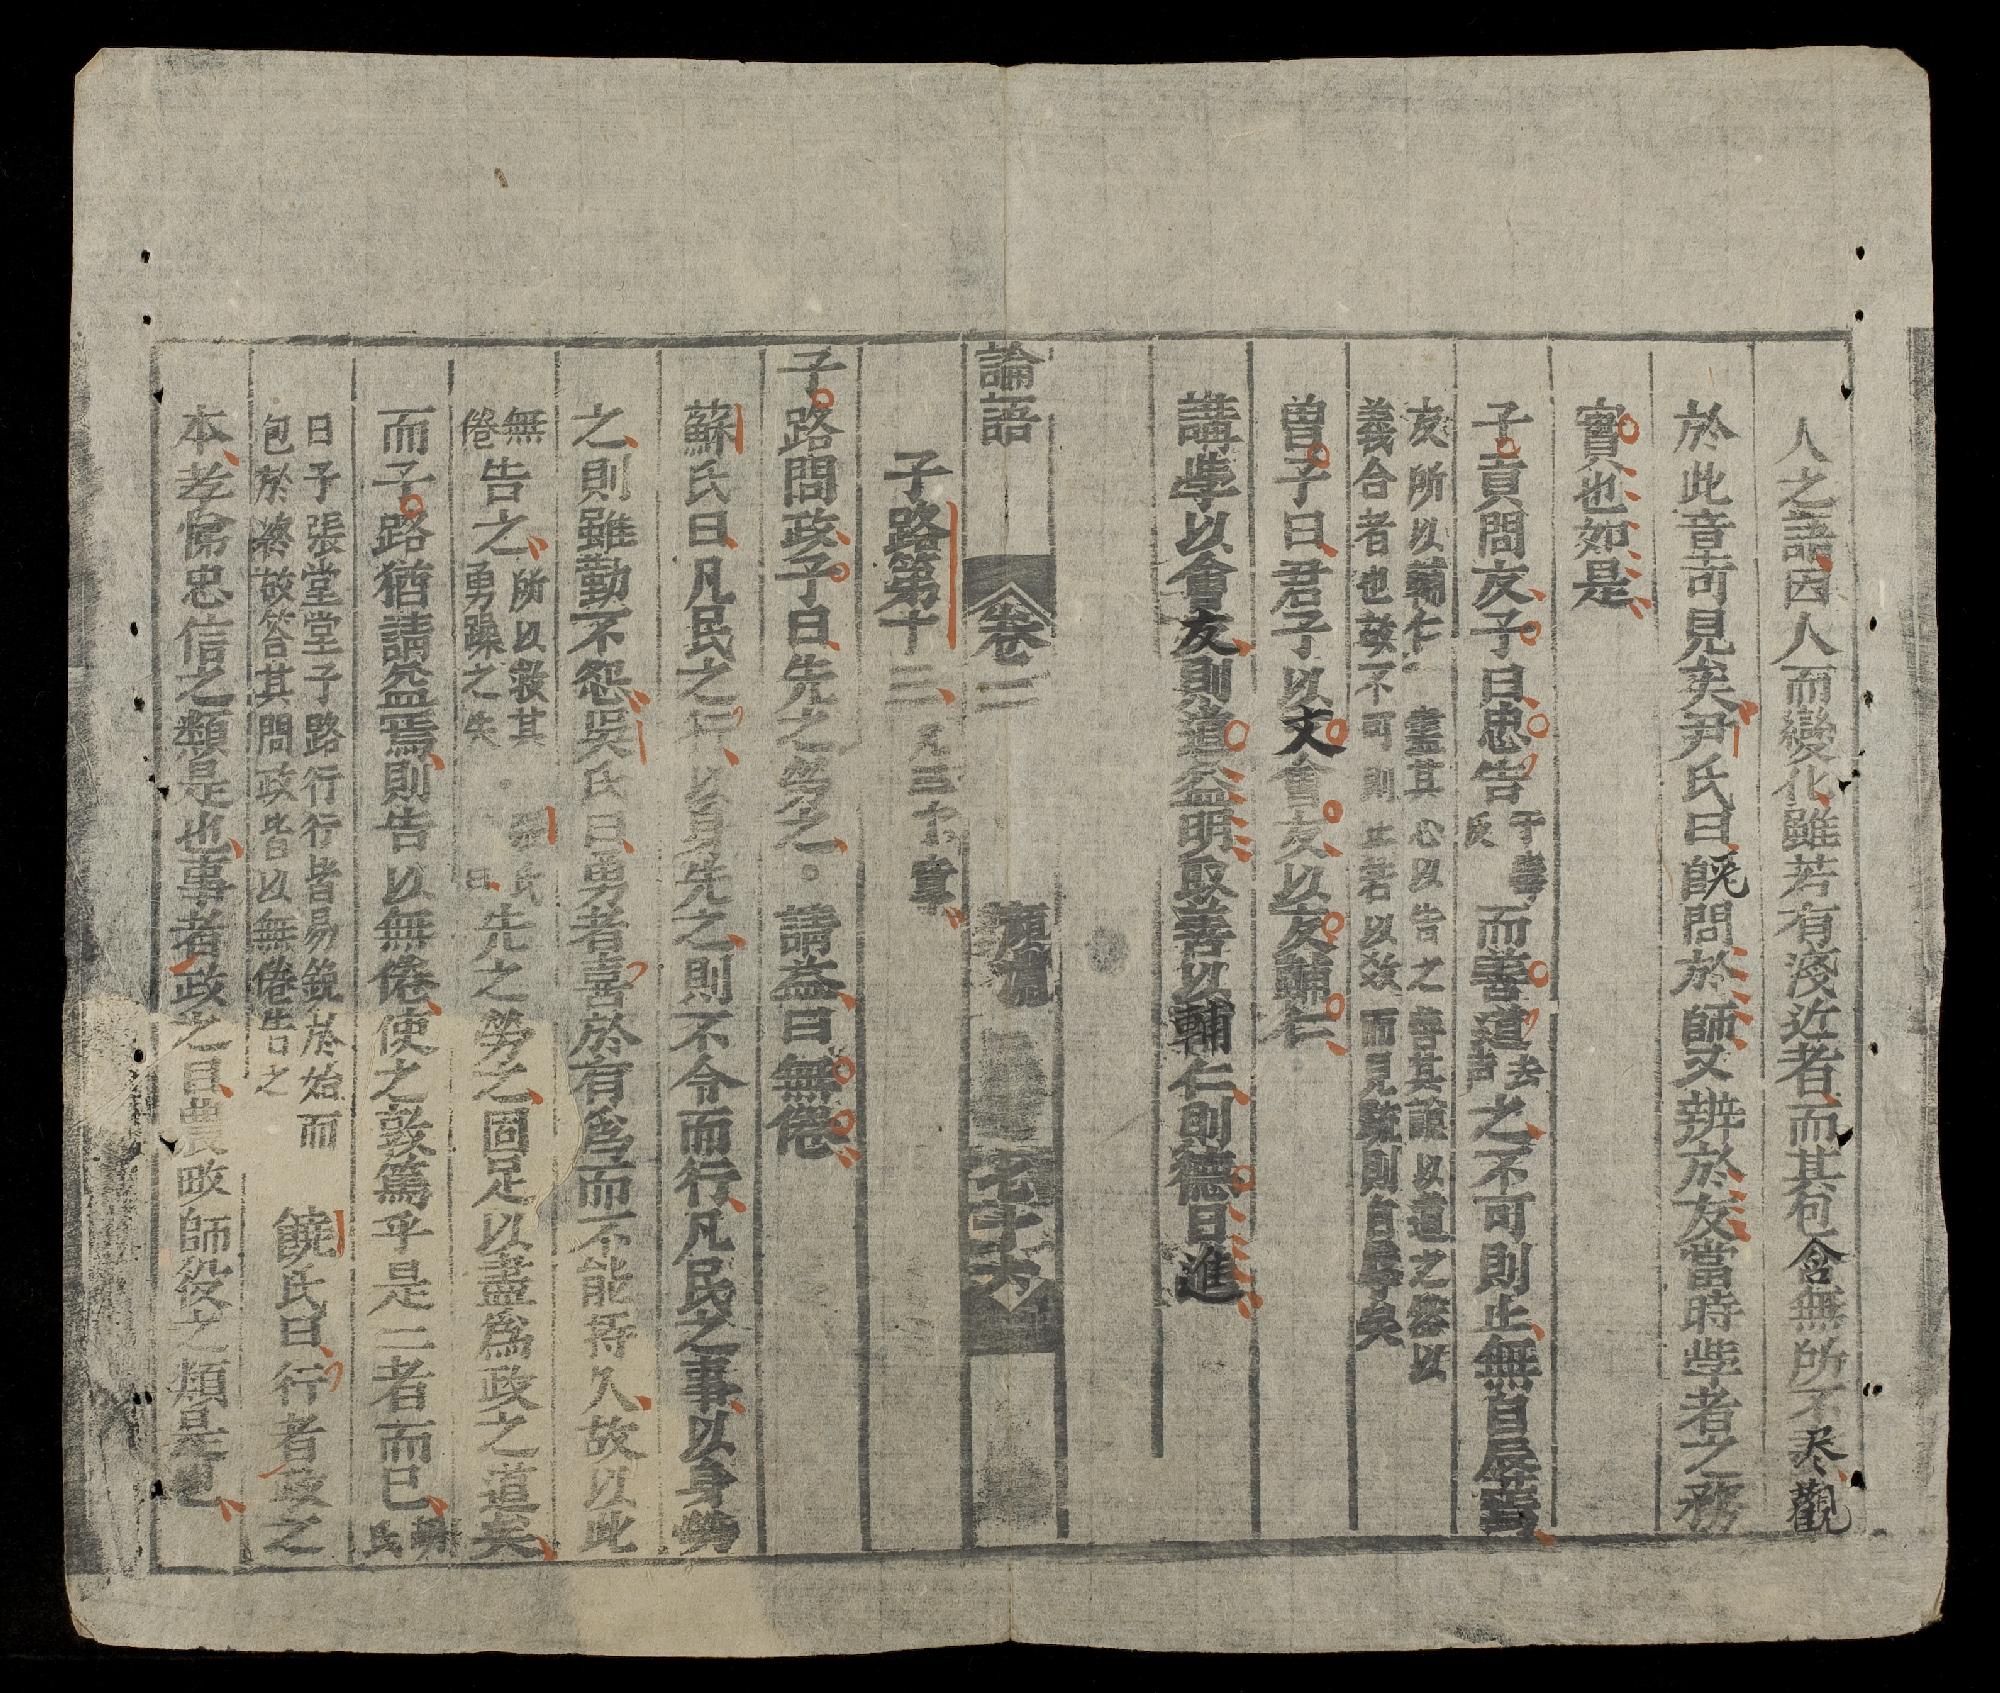 人之語因人而變化雖若有淺近者而其包含無所不尽觀
於此章可見矣尹氏曰既問於師又辨於友當時斈者之務
實也如是
子貢問友子曰忠告而善道去声之不可則止無自辱焉
友所以輔仁盡其心以告之善其說以道之然以
義合者也故不可則止若以数而見疏則自辱矣
曽子曰君子以文會友以友輔仁
講斈以會友則道益明取善以輔仁則德日進
論語 卷二 顔淵 七十六
子路第十三凡三十章
子路問政子曰先之勞之。請益曰無倦
蘇氏曰凡民之行以身先之則不令而行凡民之事以身勞
之則雖勤不怨吳氏曰勇者喜於有為而不能持久故以此
無倦告之所以救其勇躁之失
氏曰先之勞之固足以盡為政之道矣
而子路猶請益焉則告以無倦使之敦篤乎是二者而已
氏
曰子張堂堂子路行行皆易銳於始而
包於終故答其問政皆以無倦告之
饒氏曰行者政之
本孝悌忠信之類是也事者政之目農畝師役之類是也